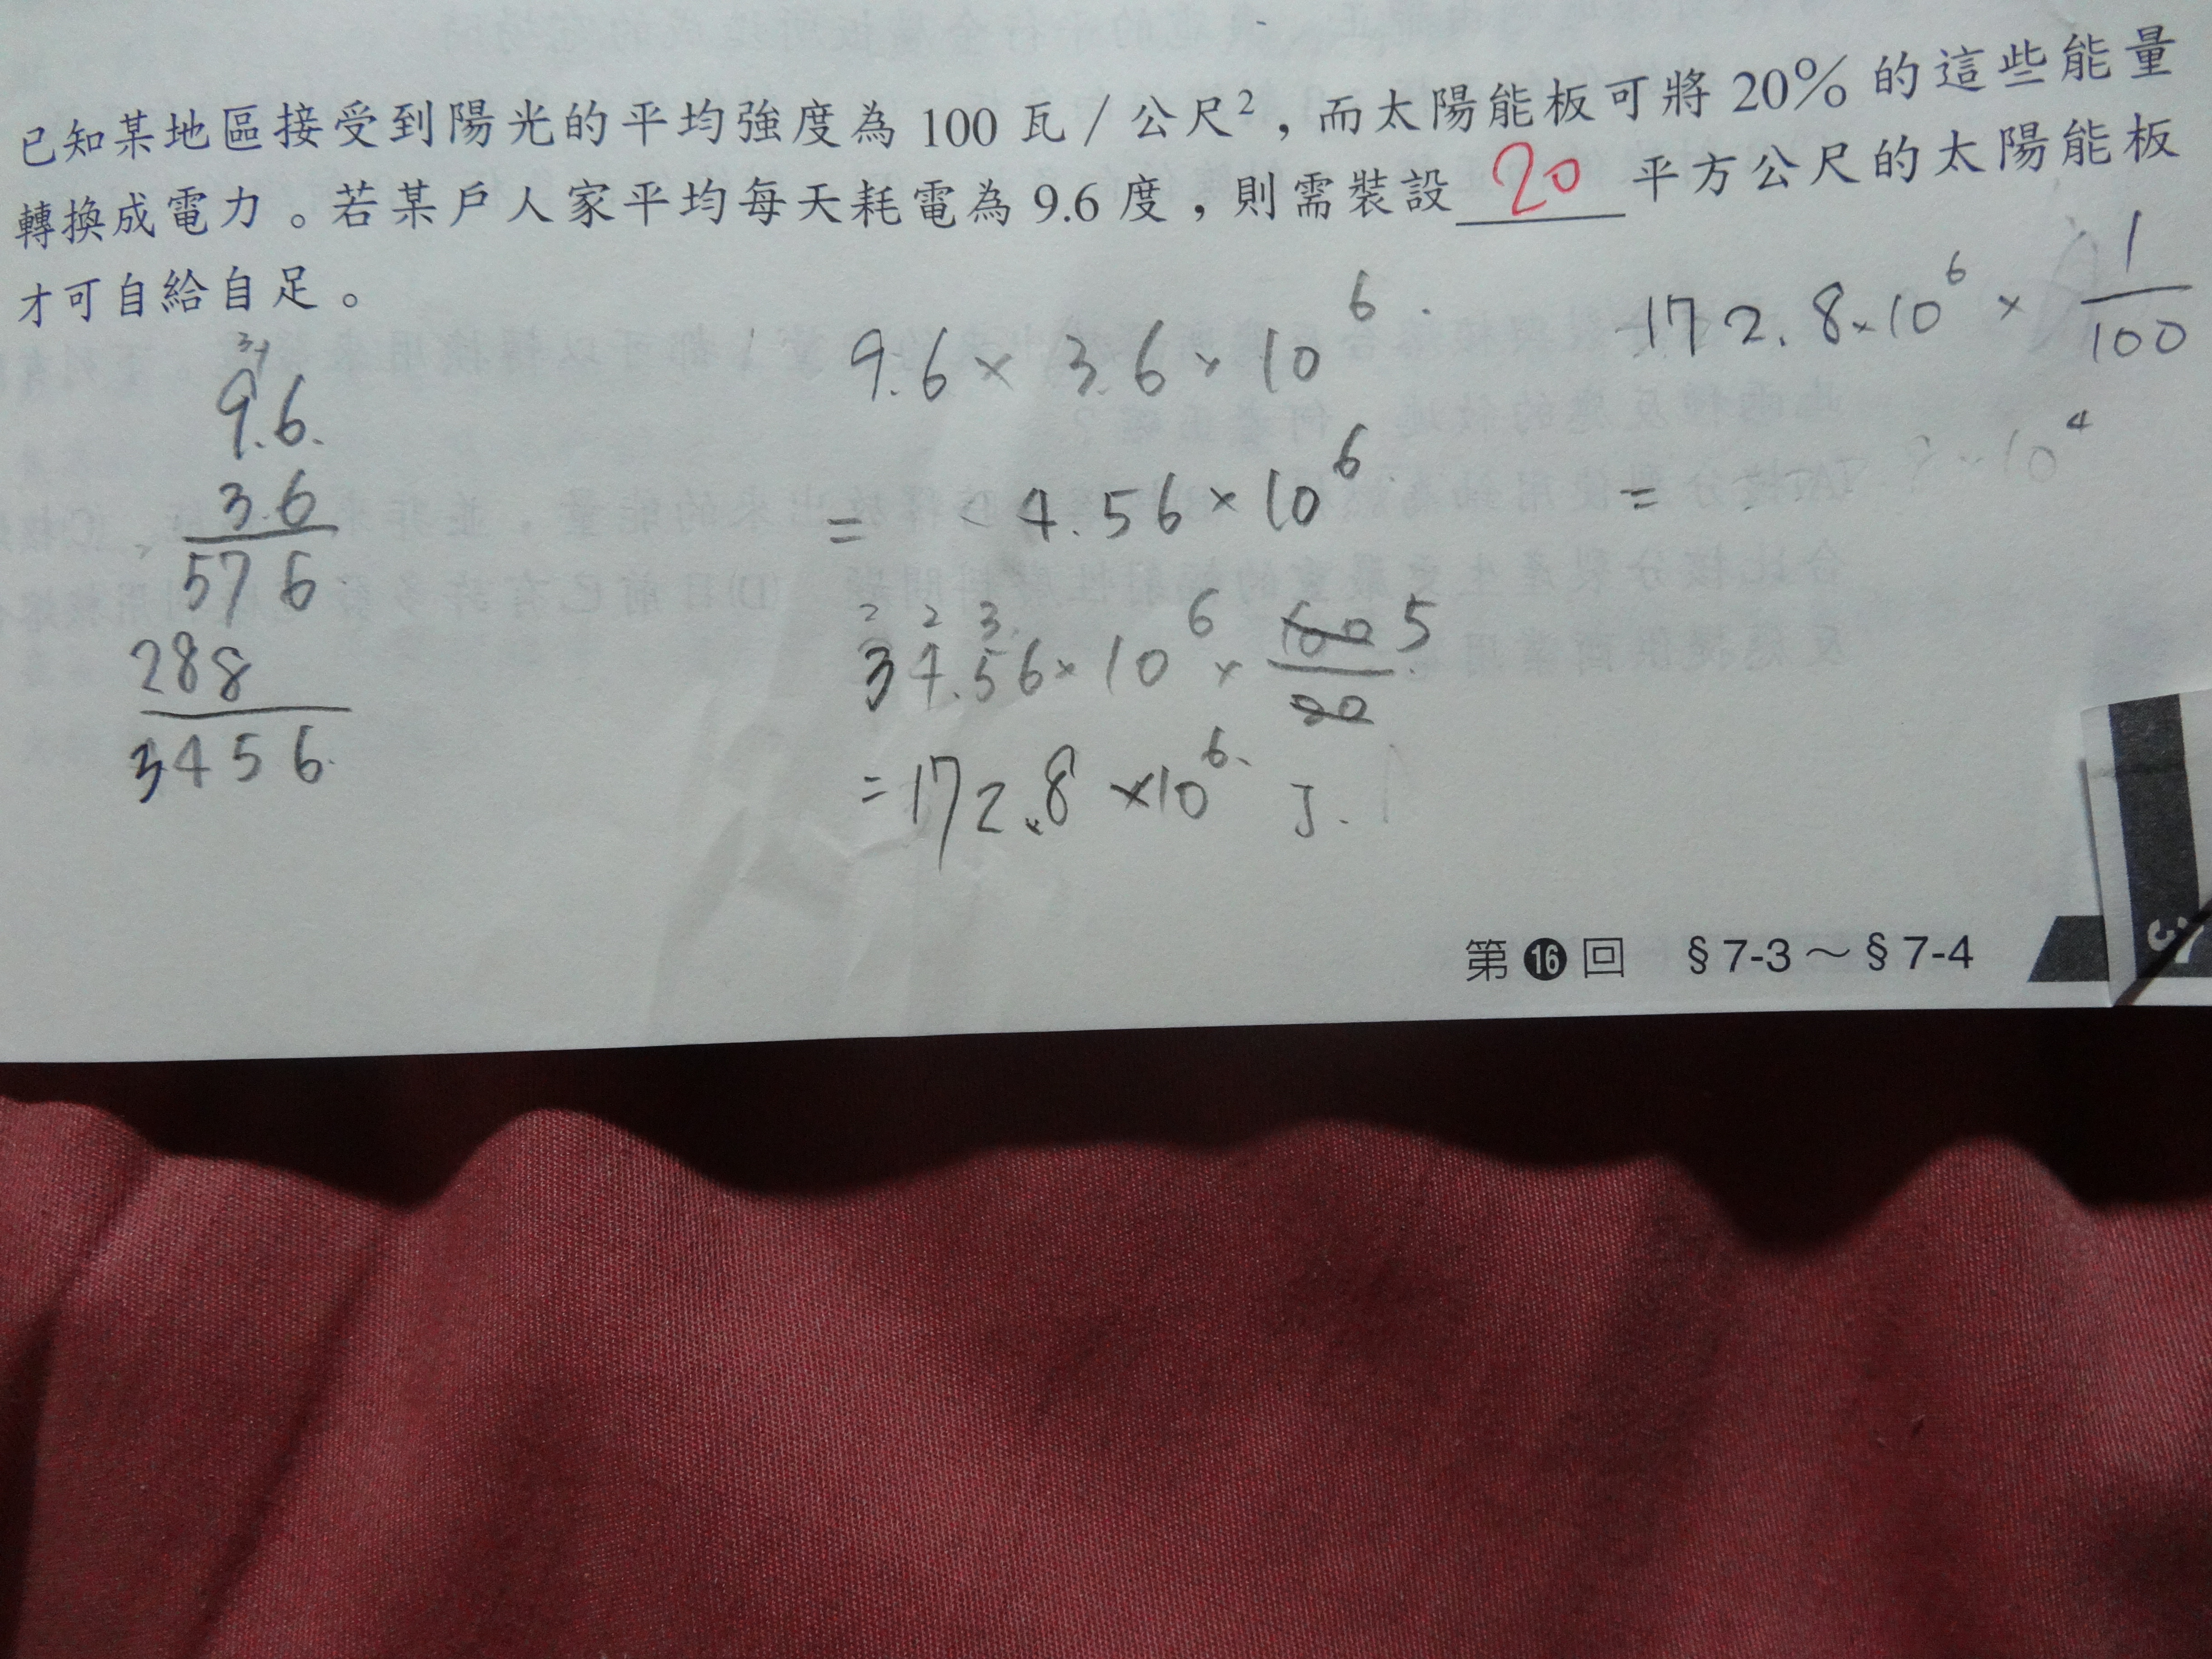 已知某地區接受到陽光的平均強度為 100 瓦／公尺²，而太陽能板可將 20% 的這些能量
轉換成電力。若某戶人家平均每天耗電為 9.6 度，則需裝設 20 平方公尺的太陽能板
才可自給自足。
9.6
3.6
576
288
3456
9.6 × 3.6 × 10⁶
= 4.56 × 10⁶
2 2 3
34.56 × 10⁶ × 100/20 5
= 172.8 × 10⁶ J.
172.8 × 10⁶ × 1/100
=
10⁴
第 16 回 §7-3～§7-4